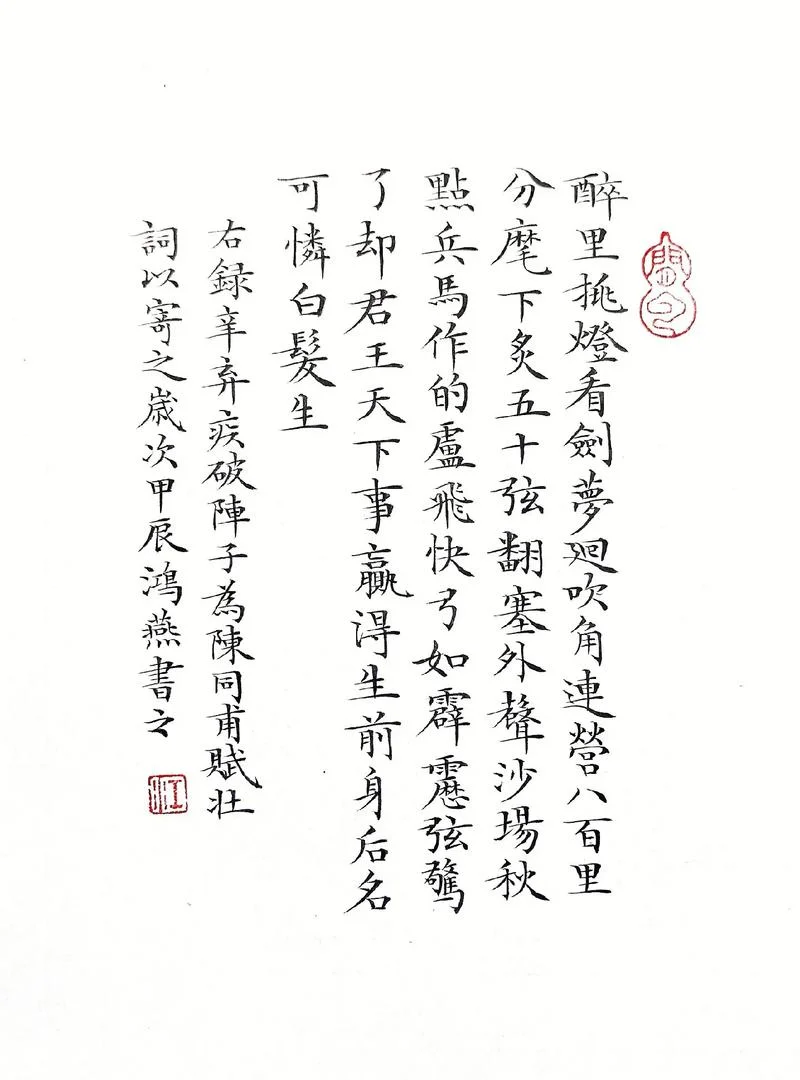 醉里挑燈看劍夢迴吹角連營八百里
分麾下炙五十弦翻塞外聲沙場秋
點兵馬作的盧飛快弓如霹靂弦驚
了却君王天下事贏得生前身后名
可憐白髮生
右録辛弃疾破陣子為陳同甫賦壮
詞以寄之歳次甲辰鴻燕書之
江